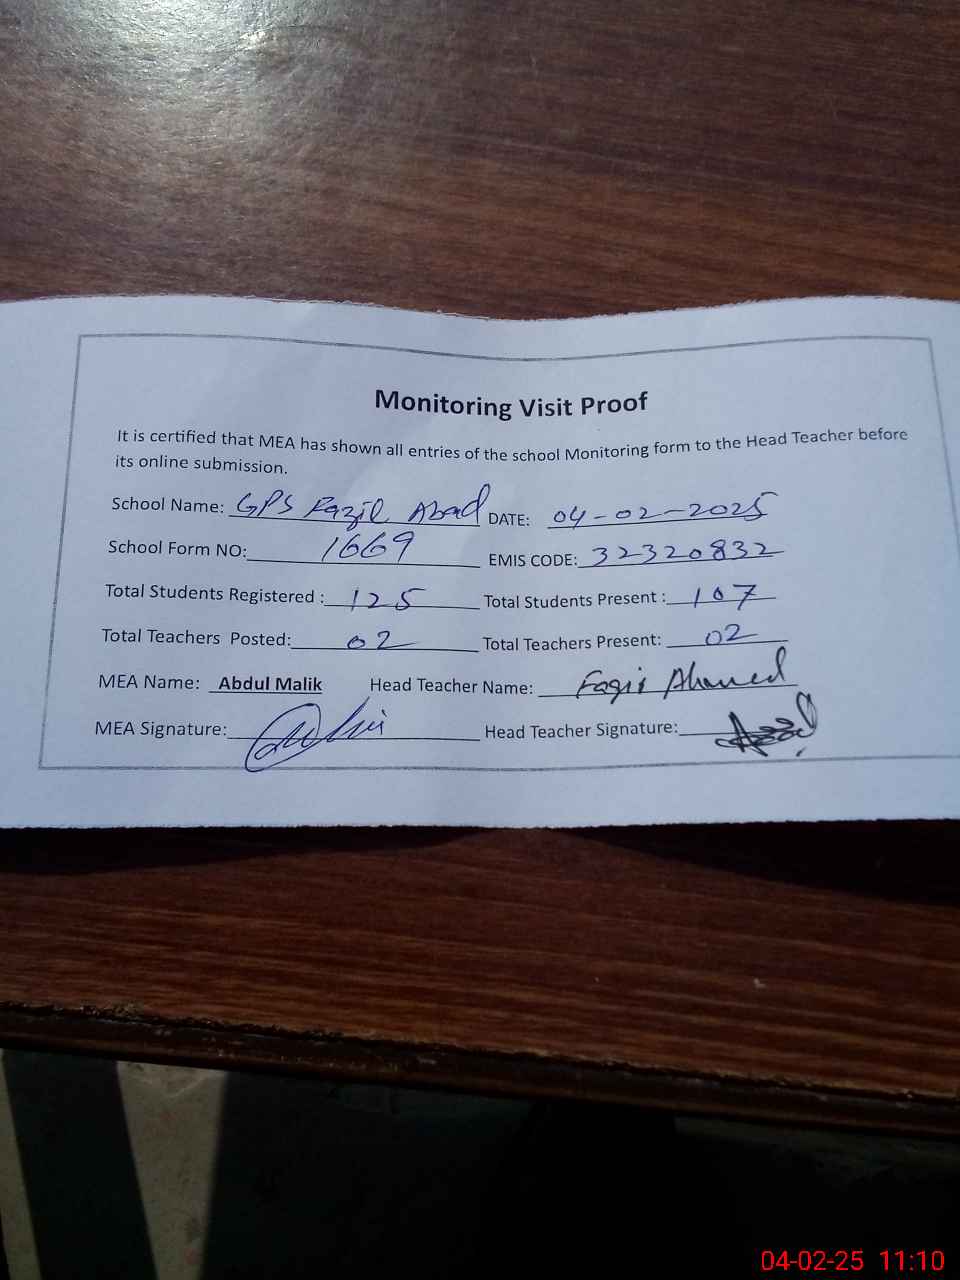 Monitoring Visit Proof
It is certified that MEA has shown all entries of the school Monitoring form to the Head Teacher before
its online submission.
School Name: GPS Fazil Abad DATE: 04-02-2025
School Form NO: 1669 EMIS CODE: 32320832
Total Students Registered : 125 Total Students Present : 107
Total Teachers Posted: 02 Total Teachers Present: 02
MEA Name: Abdul Malik Head Teacher Name: Faqir Ahmed
MEA Signature: Head Teacher Signature:
04-02-25 11:10